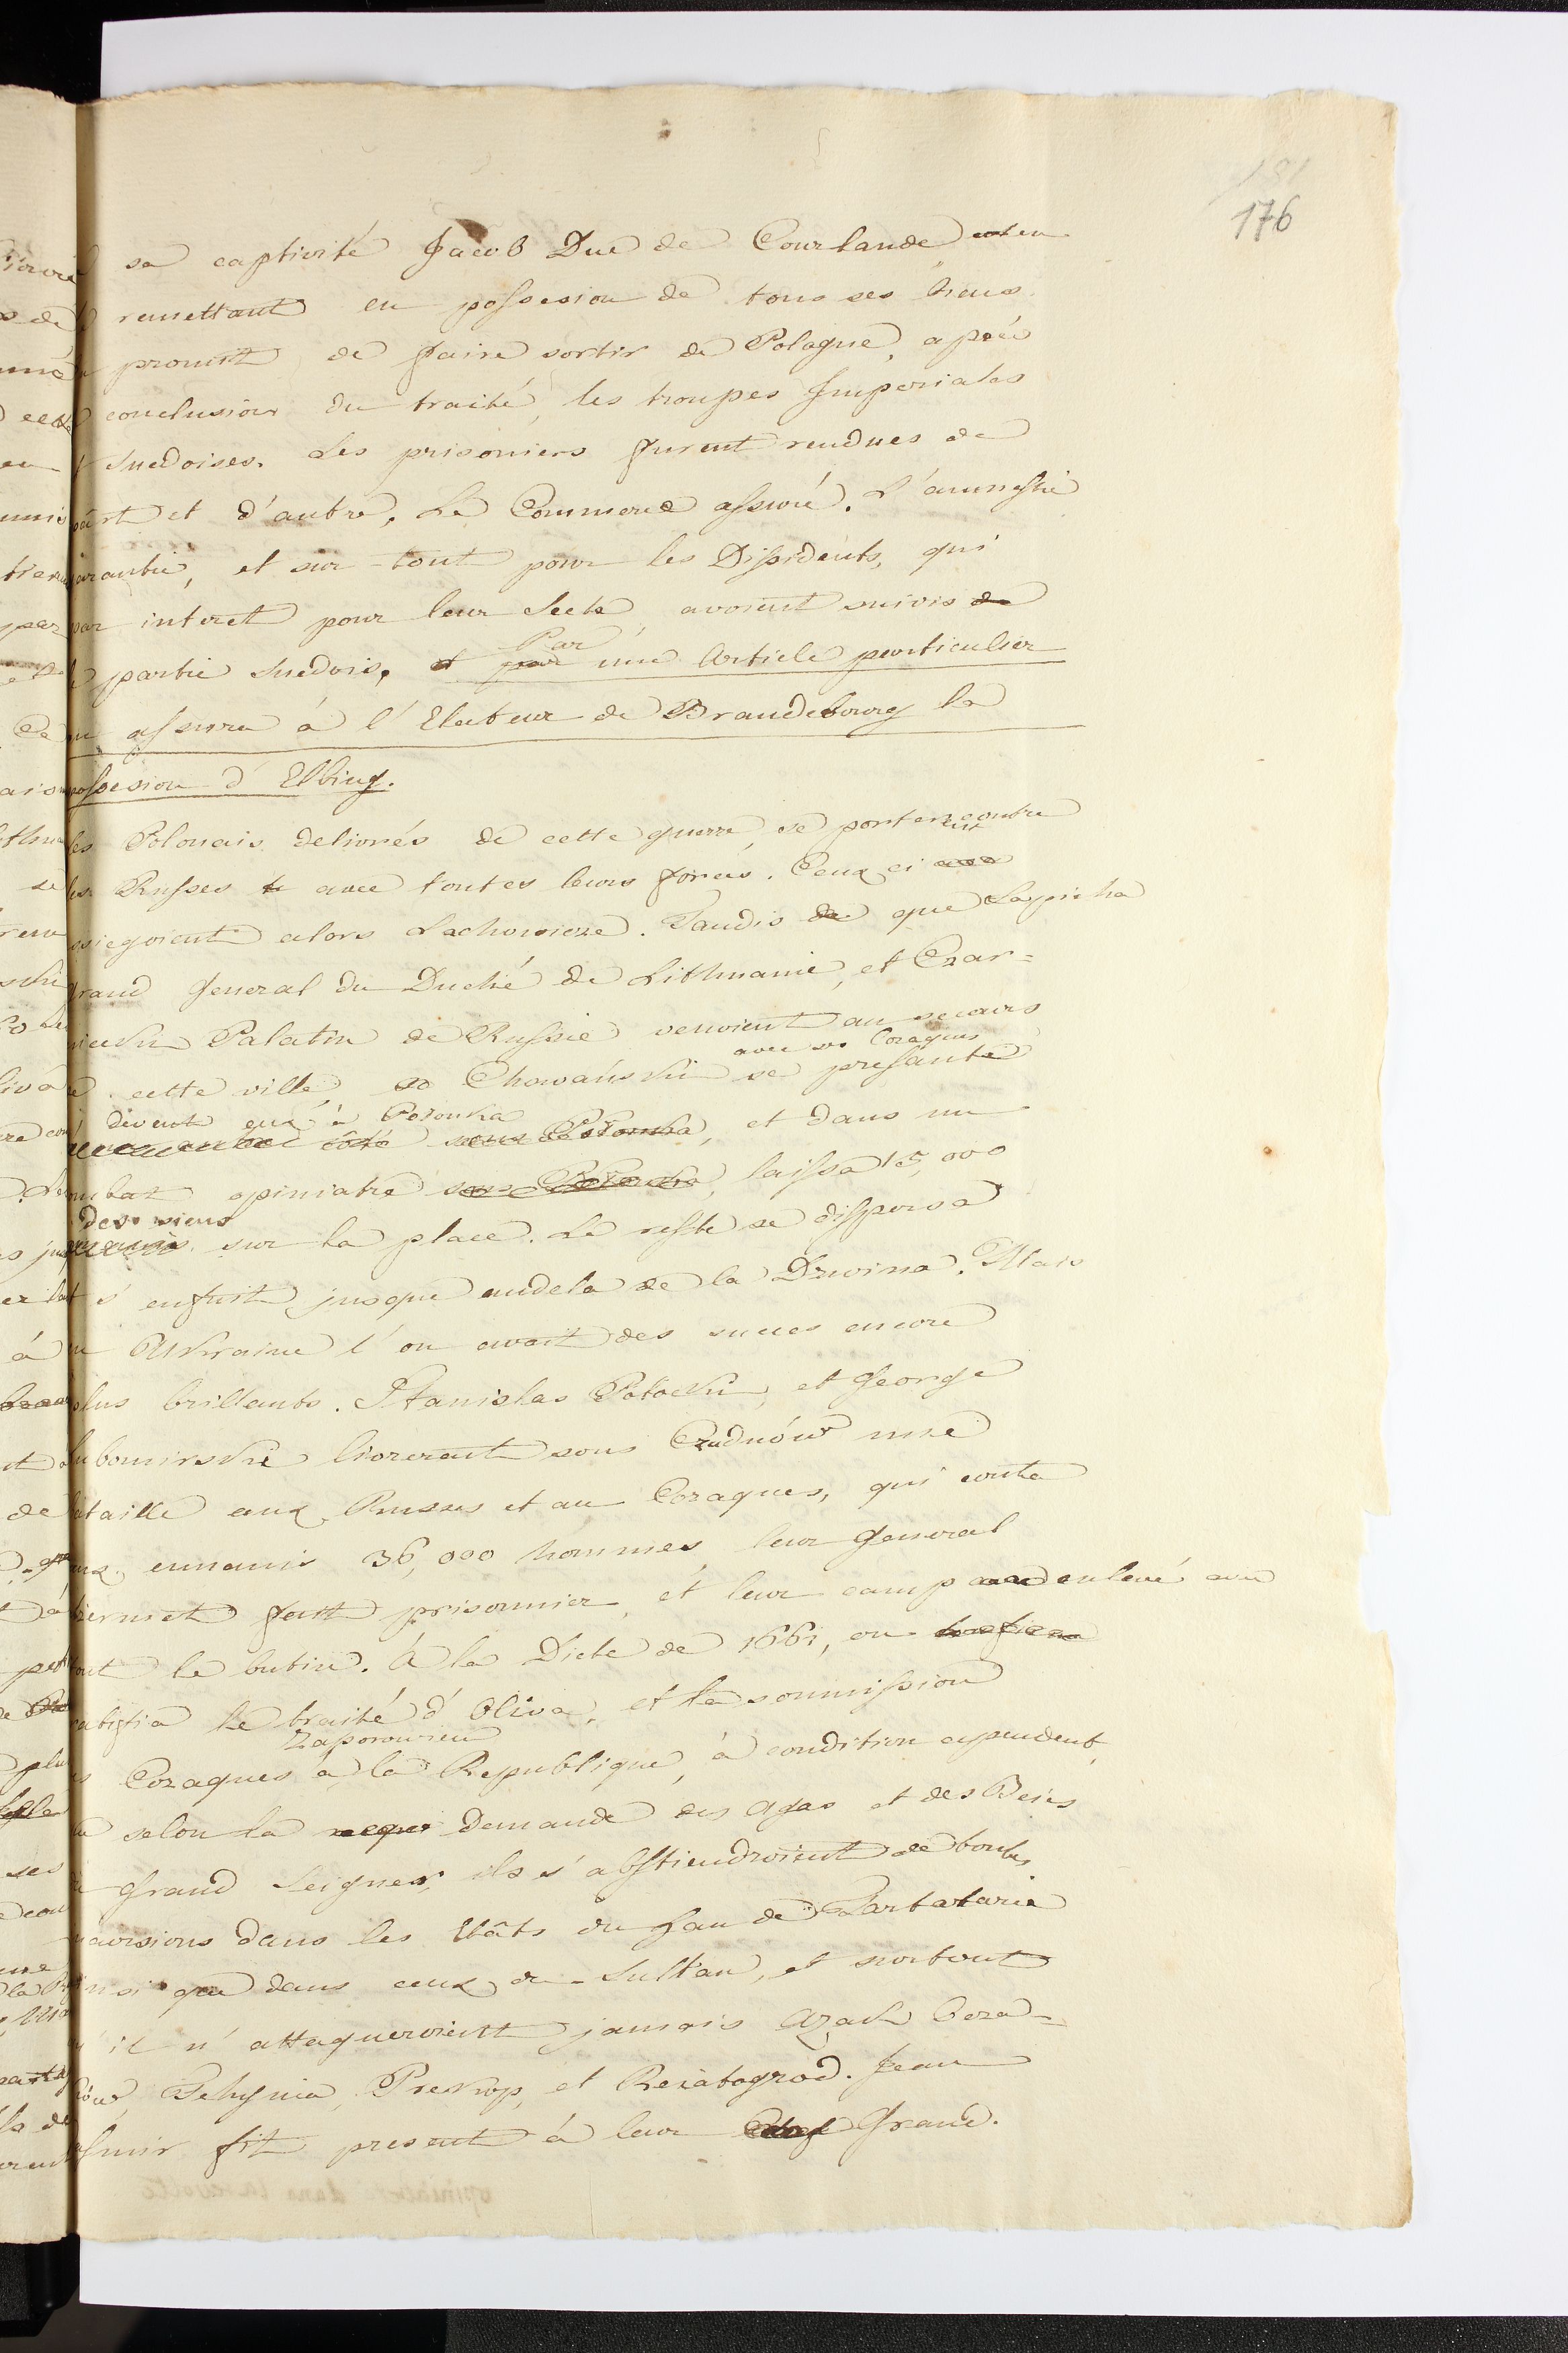 181
176
sa captivité Jacob Duc de Courlande et en
remettant en possesion de tous ses biens
promit de faire sortir de Pologne, après
conclusion du traité, les troupes Imperiales
Suedoises. Les prisoniers furent rendues de
part et d'autre, Le Commerce assuré. L'amnestie
garantie, et sur-tout pour les Dissidents, qui
par interet pour leur Secte, avoient suivis de
partie Suedois, et par Par une Article particulier
assura à l'Electeur de Brandebourg la
possesion d'Elbing.
les Polonais delivrés de cette guerre, se porterent contre
les Russes avec toutes leurs forces. Ceux ci
assiegoient alors Lachowicze. Tandis de que Sapieha
grand General du Duché de Lithuanie, et Czar=
niecki Palatin de Russie venoient au secours
de cette ville, Chowański avec ses Cozaques se presante
devent eux à Polonka
côté sous Polonka, et dans un
combat opiniatre sous Polonka, laissa 15,000
des siens
sur la place. Le reste se dispersa
et s'enfuit jusque audela de la Dzwina. Mais
en Ukraine l'on avait des succes encore
plus brillants. Stanislas Potocki, et George
Lubomirski livrerent sous Czudnów une
bataille aux Russes et au Cozaques, qui couta
aux ennemis 36,000 hommes, leur General
fait prisonnier, et leur camp enlevé avec
tout le butin. à la Diete de 1661, on
ratifia le traité d'Oliva, et la soumission
des Cozaques Zaporowiens a la Republique, à condition cependent,
que selon la requi Demande des Agas et des Beis
du Grand Seigner, ils s'abstiendroient de toutes
incursions dans les Etâts du Han de Tartatarie
ainsi que dans ceux du Sultan, et surtout
qu'il n'attaqueroient jamais Azak Ocza=
ków, Tehynia, Prekop, et Reiatogrod. Jean
Casimir fit present à leur Chef Grand.